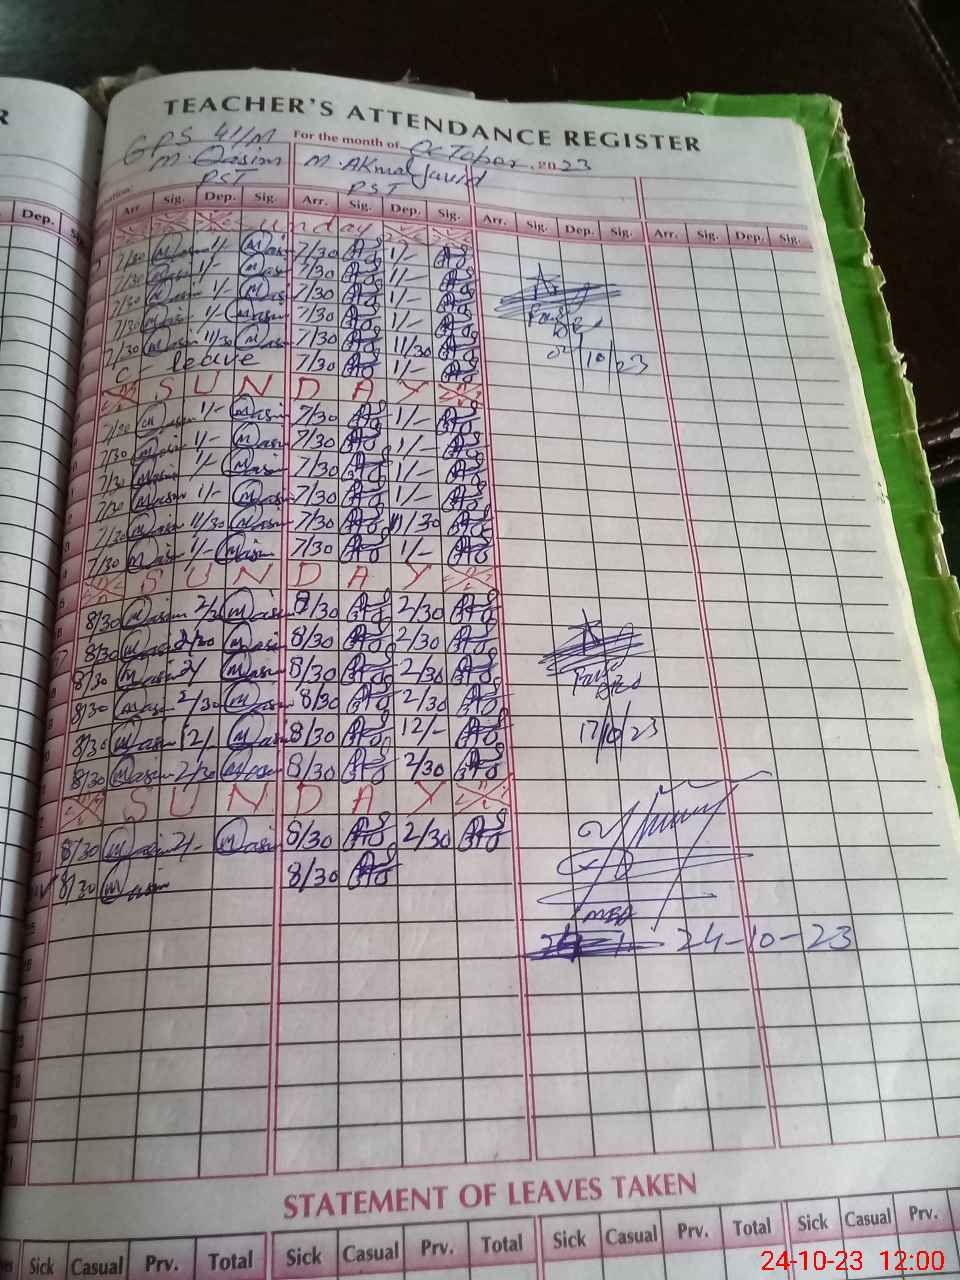 R
TEACHER'S ATTENDANCE REGISTER
GPS 41/M For the month of October 2023
M. Qasim M. AKmal Javid
PST PST
Dep. Arr. Sig. Dep. Sig. Arr. Sig. Dep. Sig. Arr. Sig. Dep. Sig. Arr. Sig. Dep. Sig.
Sunday
7/30 Masim 1/- Masim 7/30 1/-
7/30 Masim 1/- Masim 7/30 1/-
7/30 Masim 1/- Masim 7/30 1/-
7/30 Masim 1/- Masim 7/30 1/-
7/30 Masim 11/30 Masim 7/30 11/30
C - leave 7/30 1/-
10/23
SUNDAY
7/30 Masim 1/- Masim 7/30 1/-
7/30 Masim 1/- Masim 7/30 1/-
7/30 Masim 1/- Masim 7/30 1/-
7/30 Masim 1/- Masim 7/30 1/-
7/30 Masim 11/30 Masim 7/30 11/30
7/30 Masim 1/- Masim 7/30 1/-
SUNDAY
8/30 Masim Masim 8/30 2/30
8/30 Masim 2/30 Masim 8/30 2/30
8/30 Masim 2/ Masim 8/30 2/30
8/30 Masim 2/30 Masim 8/30 2/30
8/30 Masim 12/- Masim 8/30 12/-
17/10/23
8/30 Masim 2/30 Masim 8/30 2/30
SUNDAY
8/30 Masim 2/- Masim 8/30 2/30
8/30 Masim 8/30
MEA
24-10-23
STATEMENT OF LEAVES TAKEN
Sick Casual Prv. Total Sick Casual Prv. Total Sick Casual Prv. Total Sick Casual Prv.
24-10-23 12:00